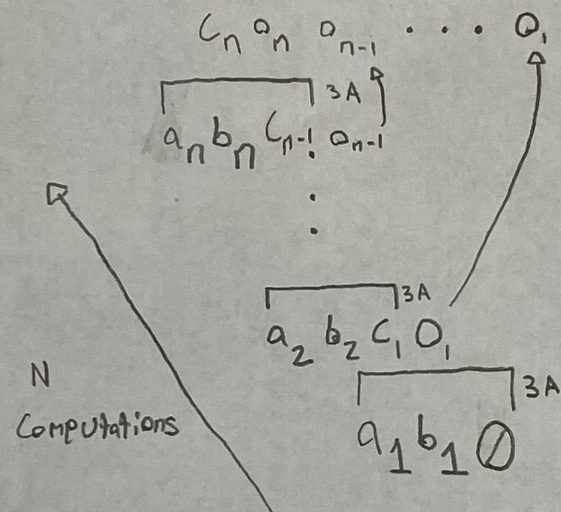 Cn On On-1 . . . O1
3A
an bn Cn-1 On-1
3A
a2 b2 C1 O1
3A
a1 b1 0
N
Computations